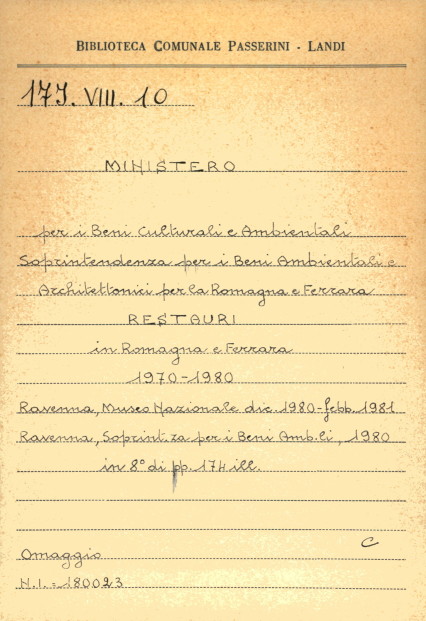 BIBLIOTECA COMUNALE PASSERINI - LANDI
17J. VIII. 10
MINISTERO
per i Beni Culturali e Ambientali
Soprintendenza per i Beni Ambientali e
Architettonici per la Romagna e Ferrara
RESTAURI
in Romagna e Ferrara
1970-1980
Ravenna, Museo Nazionale dic. 1980-febb. 1981
Ravenna, Soprint.za per i Beni Amb.li, 1980
in 8° di pp. 174 ill.
C
Omaggio
N.I. = 180023